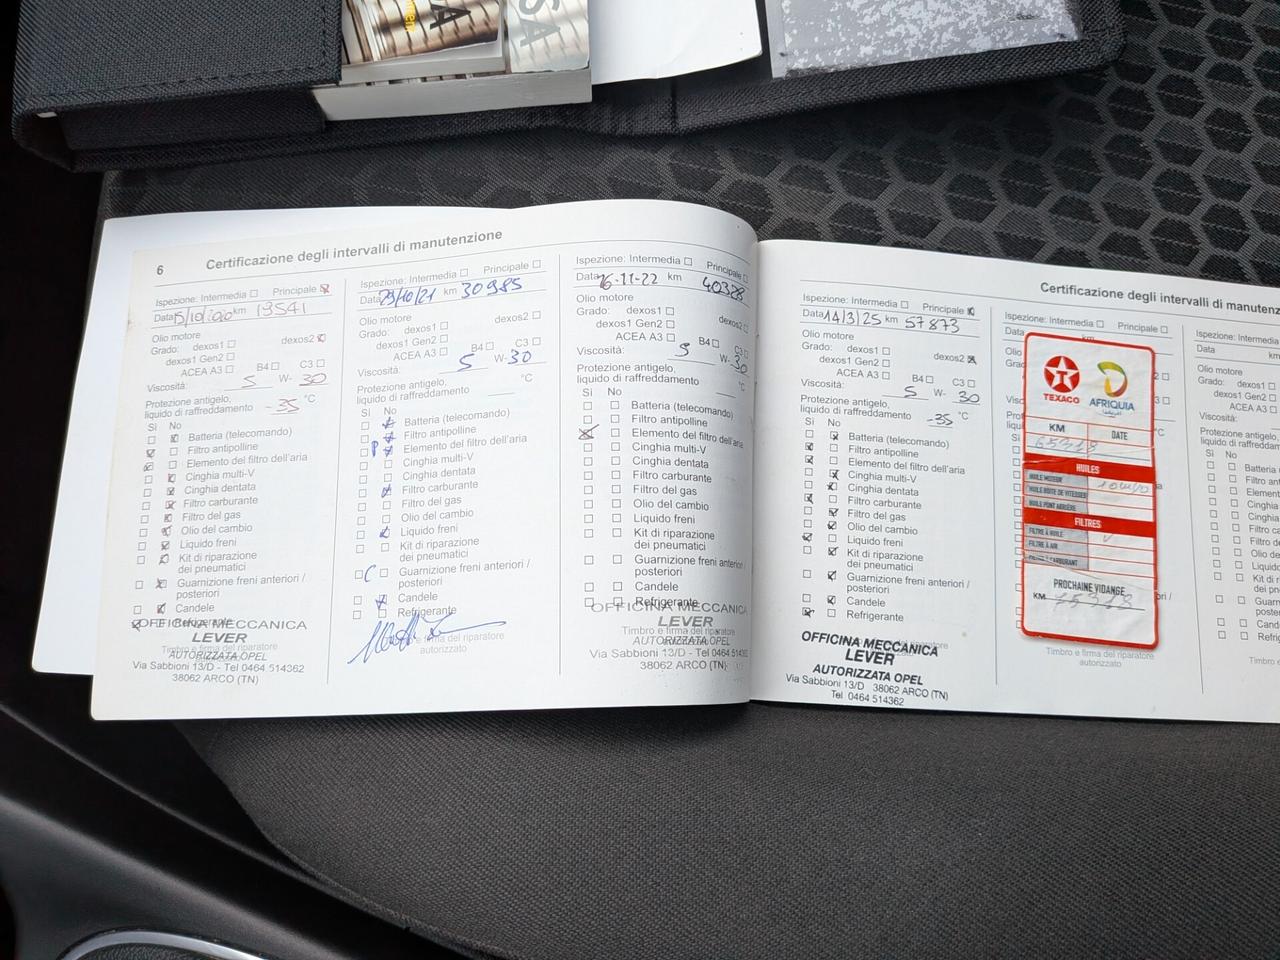 6
Certificazione degli intervalli di manutenzione
Ispezione: Intermedia ☐ Principale ☒
Data 15/10/2020 km 19541
Olio motore
Grado: dexos1 ☐ dexos2 ☒
dexos1 Gen2 ☐
ACEA A3 ☐ B4 ☐ C3 ☐
Viscosità: 5 W- 30
Protezione antigelo,
liquido di raffreddamento -35 °C
Sì No
Batteria (telecomando)
Filtro antipolline
Elemento del filtro dell'aria
Cinghia multi-V
Cinghia dentata
Filtro carburante
Filtro del gas
Olio del cambio
Liquido freni
Kit di riparazione
dei pneumatici
Guarnizione freni anteriori /
posteriori
Candele
Refrigerante
OFFICINA MECCANICA
LEVER
AUTORIZZATA OPEL
Via Sabbioni 13/D - Tel 0464 514362
38062 ARCO (TN)
Ispezione: Intermedia ☐ Principale ☐
Data 29/10/21 km 30985
Olio motore
Grado: dexos1 ☐ dexos2 ☐
dexos1 Gen2 ☐
ACEA A3 ☐ B4 ☐ C3 ☐
Viscosità: 5 W- 30
Protezione antigelo,
liquido di raffreddamento °C
Sì No
Batteria (telecomando)
Filtro antipolline
Elemento del filtro dell'aria
Cinghia multi-V
Cinghia dentata
Filtro carburante
Filtro del gas
Olio del cambio
Liquido freni
Kit di riparazione
dei pneumatici
Guarnizione freni anteriori /
posteriori
Candele
Refrigerante
Timbro e firma del riparatore
autorizzato
Ispezione: Intermedia ☐ Principale ☐
Data 16-11-22 km 40328
Olio motore
Grado: dexos1 ☐ dexos2 ☐
dexos1 Gen2 ☐
ACEA A3 ☐ B4 ☐ C3 ☐
Viscosità: 5 W- 30
Protezione antigelo,
liquido di raffreddamento °C
Sì No
Batteria (telecomando)
Filtro antipolline
Elemento del filtro dell'aria
Cinghia multi-V
Cinghia dentata
Filtro carburante
Filtro del gas
Olio del cambio
Liquido freni
Kit di riparazione
dei pneumatici
Guarnizione freni anteriori /
posteriori
Candele
Refrigerante
OFFICINA MECCANICA
LEVER
Timbro e firma del riparatore
AUTORIZZATA OPEL
Via Sabbioni 13/D - Tel 0464 514362
38062 ARCO (TN)
Certificazione degli intervalli di manutenz
Ispezione: Intermedia ☐ Principale ☒
Data 14/3/25 km 57873
Olio motore
Grado: dexos1 ☐ dexos2 ☒
dexos1 Gen2 ☐
ACEA A3 ☐ B4 ☐ C3 ☐
Viscosità: 5 W- 30
Protezione antigelo,
liquido di raffreddamento -35 °C
Sì No
Batteria (telecomando)
Filtro antipolline
Elemento del filtro dell'aria
Cinghia multi-V
Cinghia dentata
Filtro carburante
Filtro del gas
Olio del cambio
Liquido freni
Kit di riparazione
dei pneumatici
Guarnizione freni anteriori /
posteriori
Candele
Refrigerante
OFFICINA MECCANICA
LEVER
AUTORIZZATA OPEL
Via Sabbioni 13/D 38062 ARCO (TN)
Tel 0464 514362
Ispezione: Intermedia ☐ Principale ☐
Data
TEXACO
AFRIQUIA
KM DATE
65318
HUILES
HUILE MOTEUR
HUILE BOITE DE VITESSES
HUILE PONT ARRIÈRE
FILTRES
FILTRE À HUILE
FILTRE À AIR
CARBURANT
PROCHAINE VIDANGE
KM 75318
Timbro e firma del riparatore
autorizzato
Ispezione: Intermedia
Data
Olio motore
Grado: dexos1
dexos1 Gen2
ACEA A3
Viscosità:
Protezione antigelo,
liquido di raffreddamento
Sì No